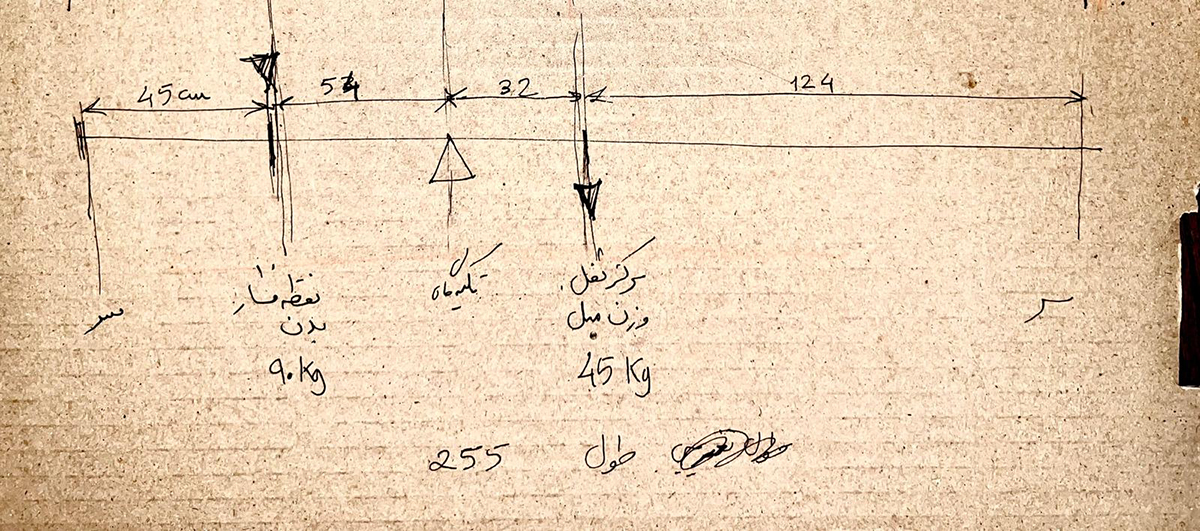 45 cm 54 32 124
سر
نقطه فشار
بدن
۹۰ Kg
تکیه گاه
مرکز ثقل
وزن میل
45 Kg
سر
طول 255